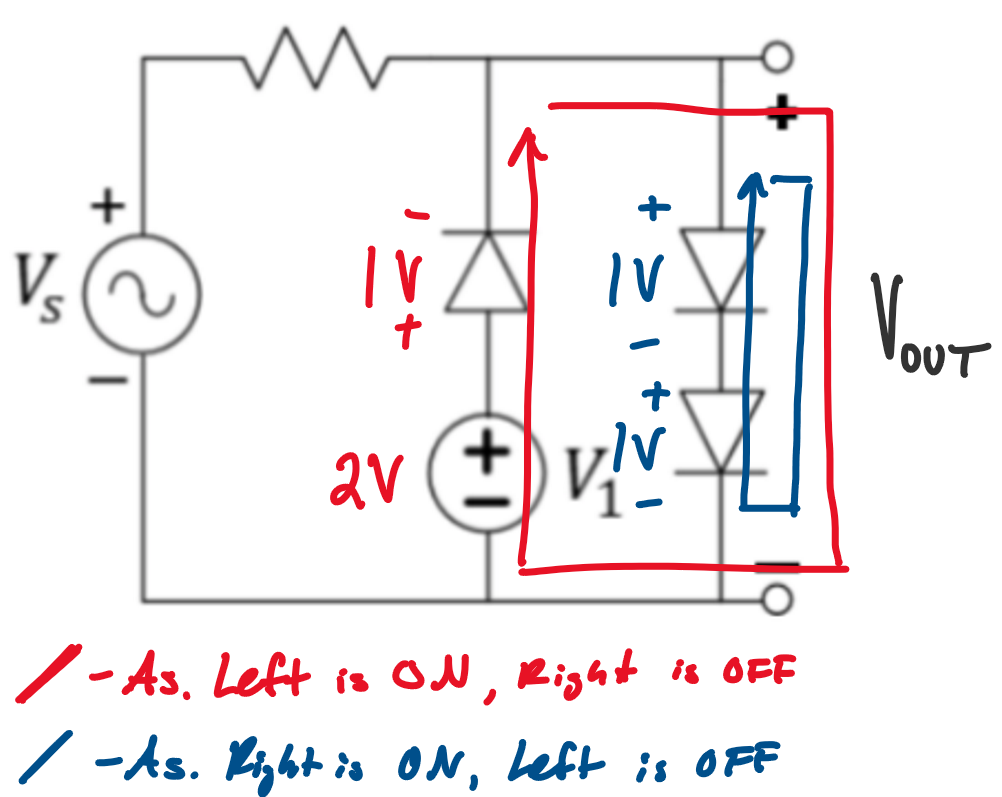 +
+
-
1V
+
+
Vs
1V
-
-
+
2V
+
-
V1
1V
-
VOUT
-
/ - As. Left is ON, Right is OFF
/ - As. Right is ON, Left is OFF